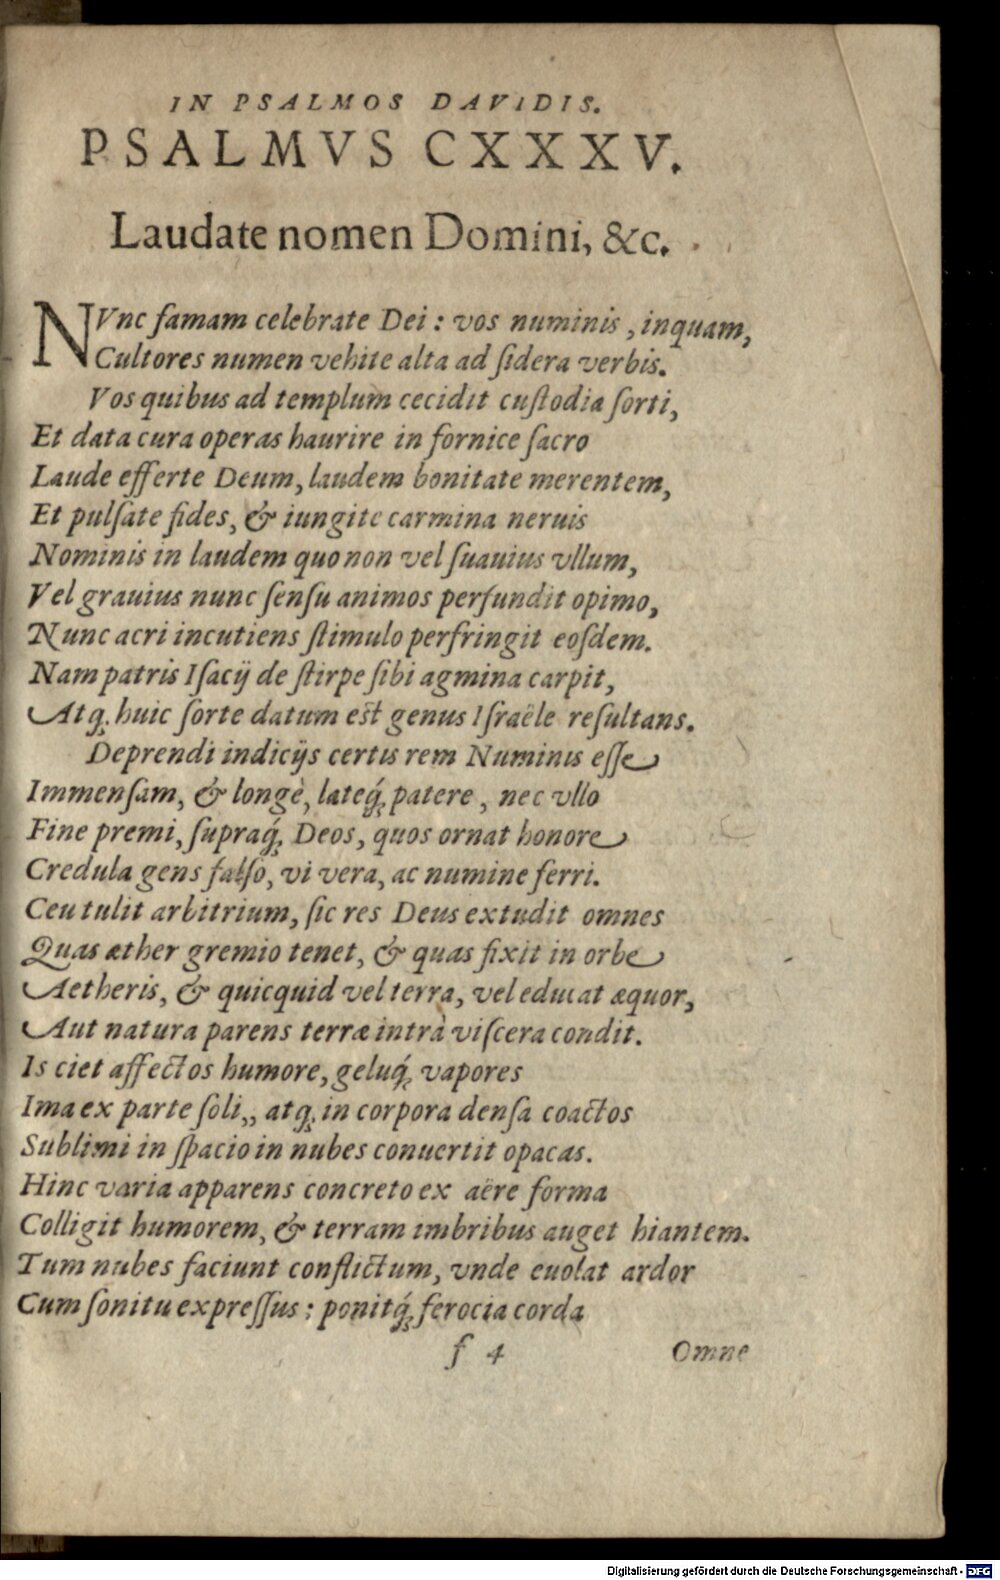 IN PSALMOS DAVIDIS.
PSALMVS CXXXV.
Laudate nomen Domini, &c.
NVnc famam celebrate Dei: vos numinis, inquam,
Cultores numen vehite alta ad ſidera verbis.
Vos quibus ad templum cecidit cuſtodia ſorti,
Et data cura operas haurire in fornice ſacro
Laude efferte Deum, laudem bonitate merentem,
Et pulſate fides, & iungite carmina neruis
Nominis in laudem quo non vel ſuauius vllum,
Vel grauius nunc ſenſu animos perfundit opimo,
Nunc acri incutiens ſtimulo perfringit eoſdem.
Nam patris Iſacij de ſtirpe ſibi agmina carpit,
Atq̨. huic ſorte datum eſt genus Iſraële reſultans.
Deprendi indicijs certis rem Numinis eſſe
Immenſam, & longè, lateq́; patere, nec vllo
Fine premi, ſupraq́; Deos, quos ornat honore
Credula gens falſo, vi vera, ac numine ferri.
Ceu tulit arbitrium, ſic res Deus extudit omnes
Quas æther gremio tenet, & quas fixit in orbe
Aetheris, & quicquid vel terra, vel educat æquor,
Aut natura parens terræ intrà viſcera condit.
Is ciet affectos humore, geluq́; vapores
Ima ex parte ſoli,, atq̨; in corpora denſa coactos
Sublimi in ſpacio in nubes conuertit opacas.
Hinc varia apparens concreto ex aëre forma
Colligit humorem, & terram imbribus auget hiantem.
Tum nubes faciunt conflictum, vnde euolat ardor
Cum ſonitu expreſſus: ponitq́; ferocia corda
f 4 Omne
Digitalisierung gefördert durch die Deutsche Forschungsgemeinschaft - DFG